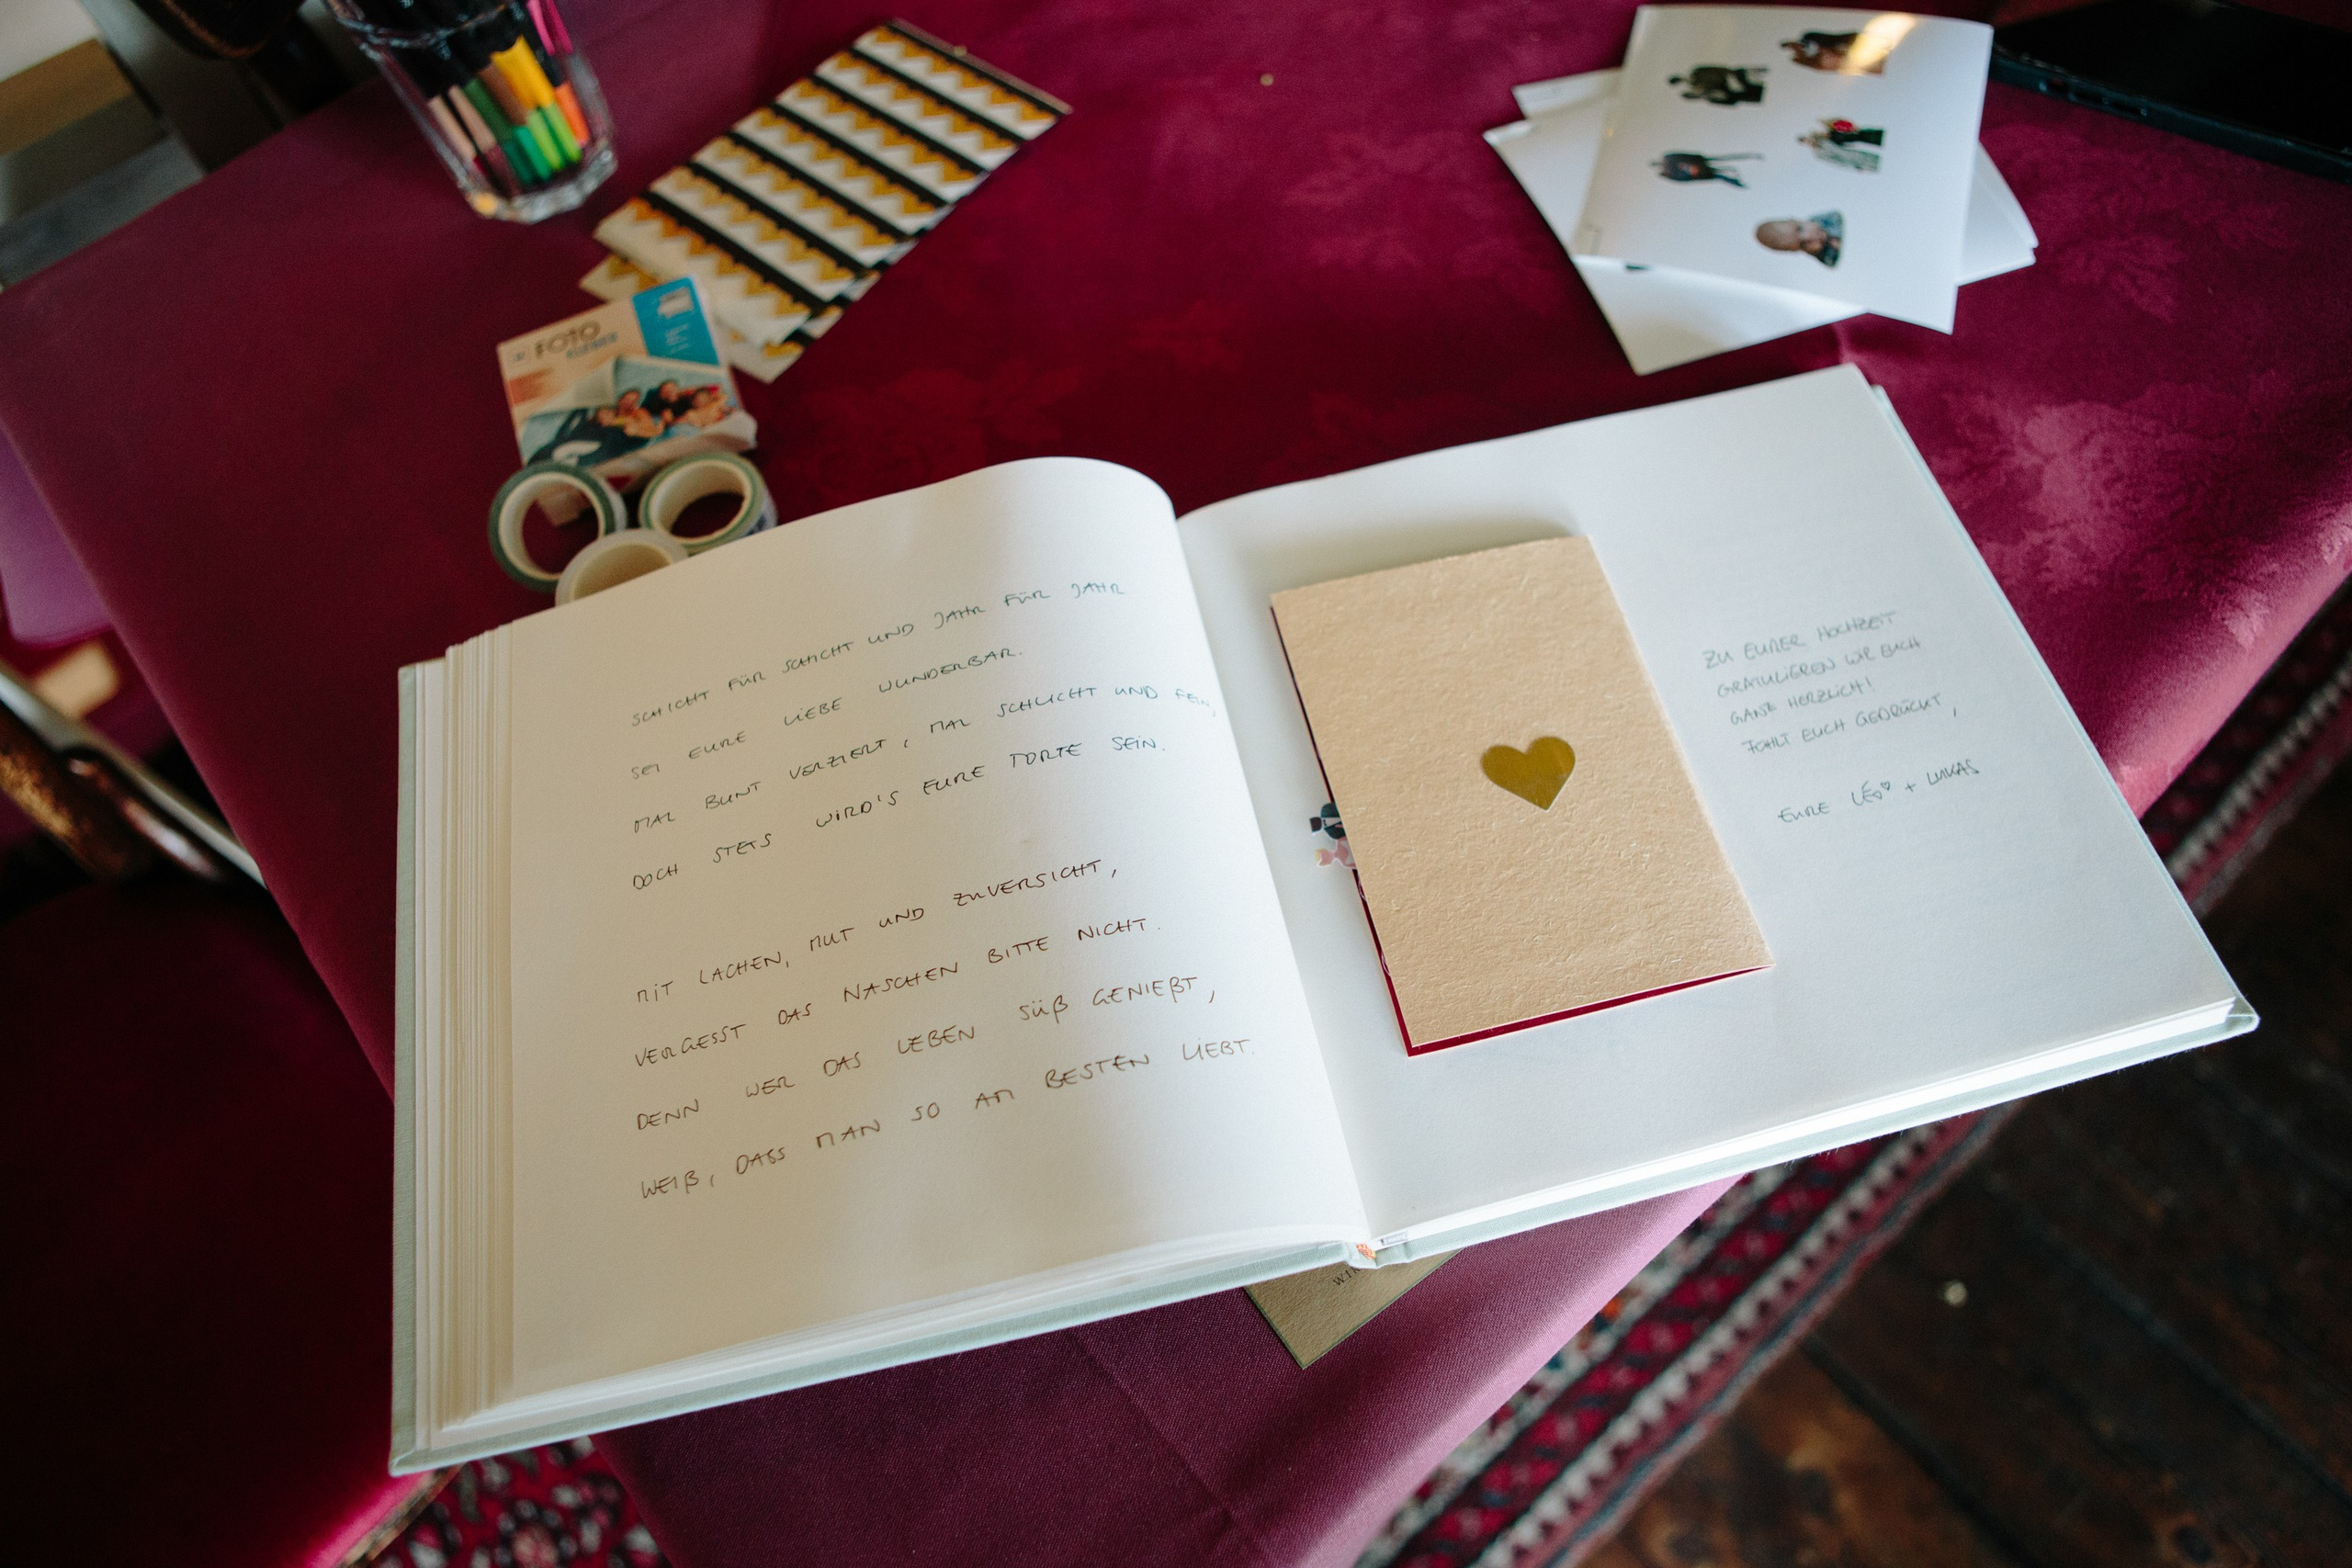 FOTO
SCHICHT FÜR SCHICHT UND JAHR FÜR JAHR
SEI EURE LIEBE WUNDERBAR.
MAL BUNT VERZIERT, MAL SCHLICHT UND FEIN,
DOCH STETS WIRD'S EURE TORTE SEIN.
MIT LACHEN, MUT UND ZUVERSICHT,
VERGESST DAS NASCHEN BITTE NICHT.
DENN WER DAS LEBEN SÜß GENIEßT,
WEIß, DASS MAN SO AM BESTEN LIEBT.
ZU EURER HOCHZEIT
GRATULIEREN WIR EUCH
GANZ HERZLICH!
FÜHLT EUCH GEDRÜCKT,
EURE LÉO♡ + LUKAS